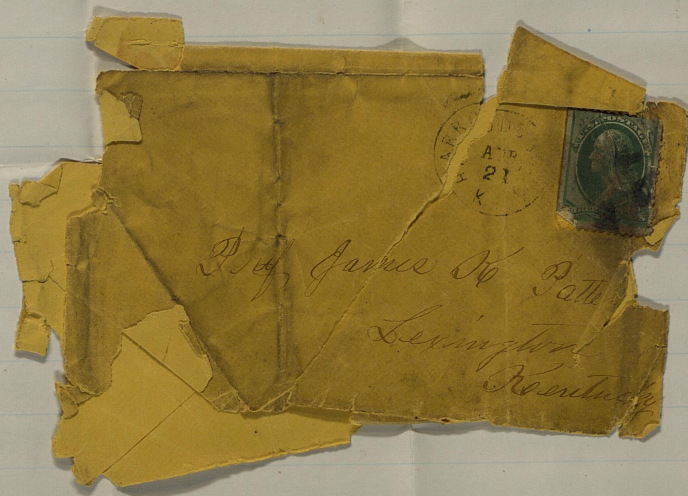 APR
21
K
Prof. James K Patte
Lexington
Kentucky